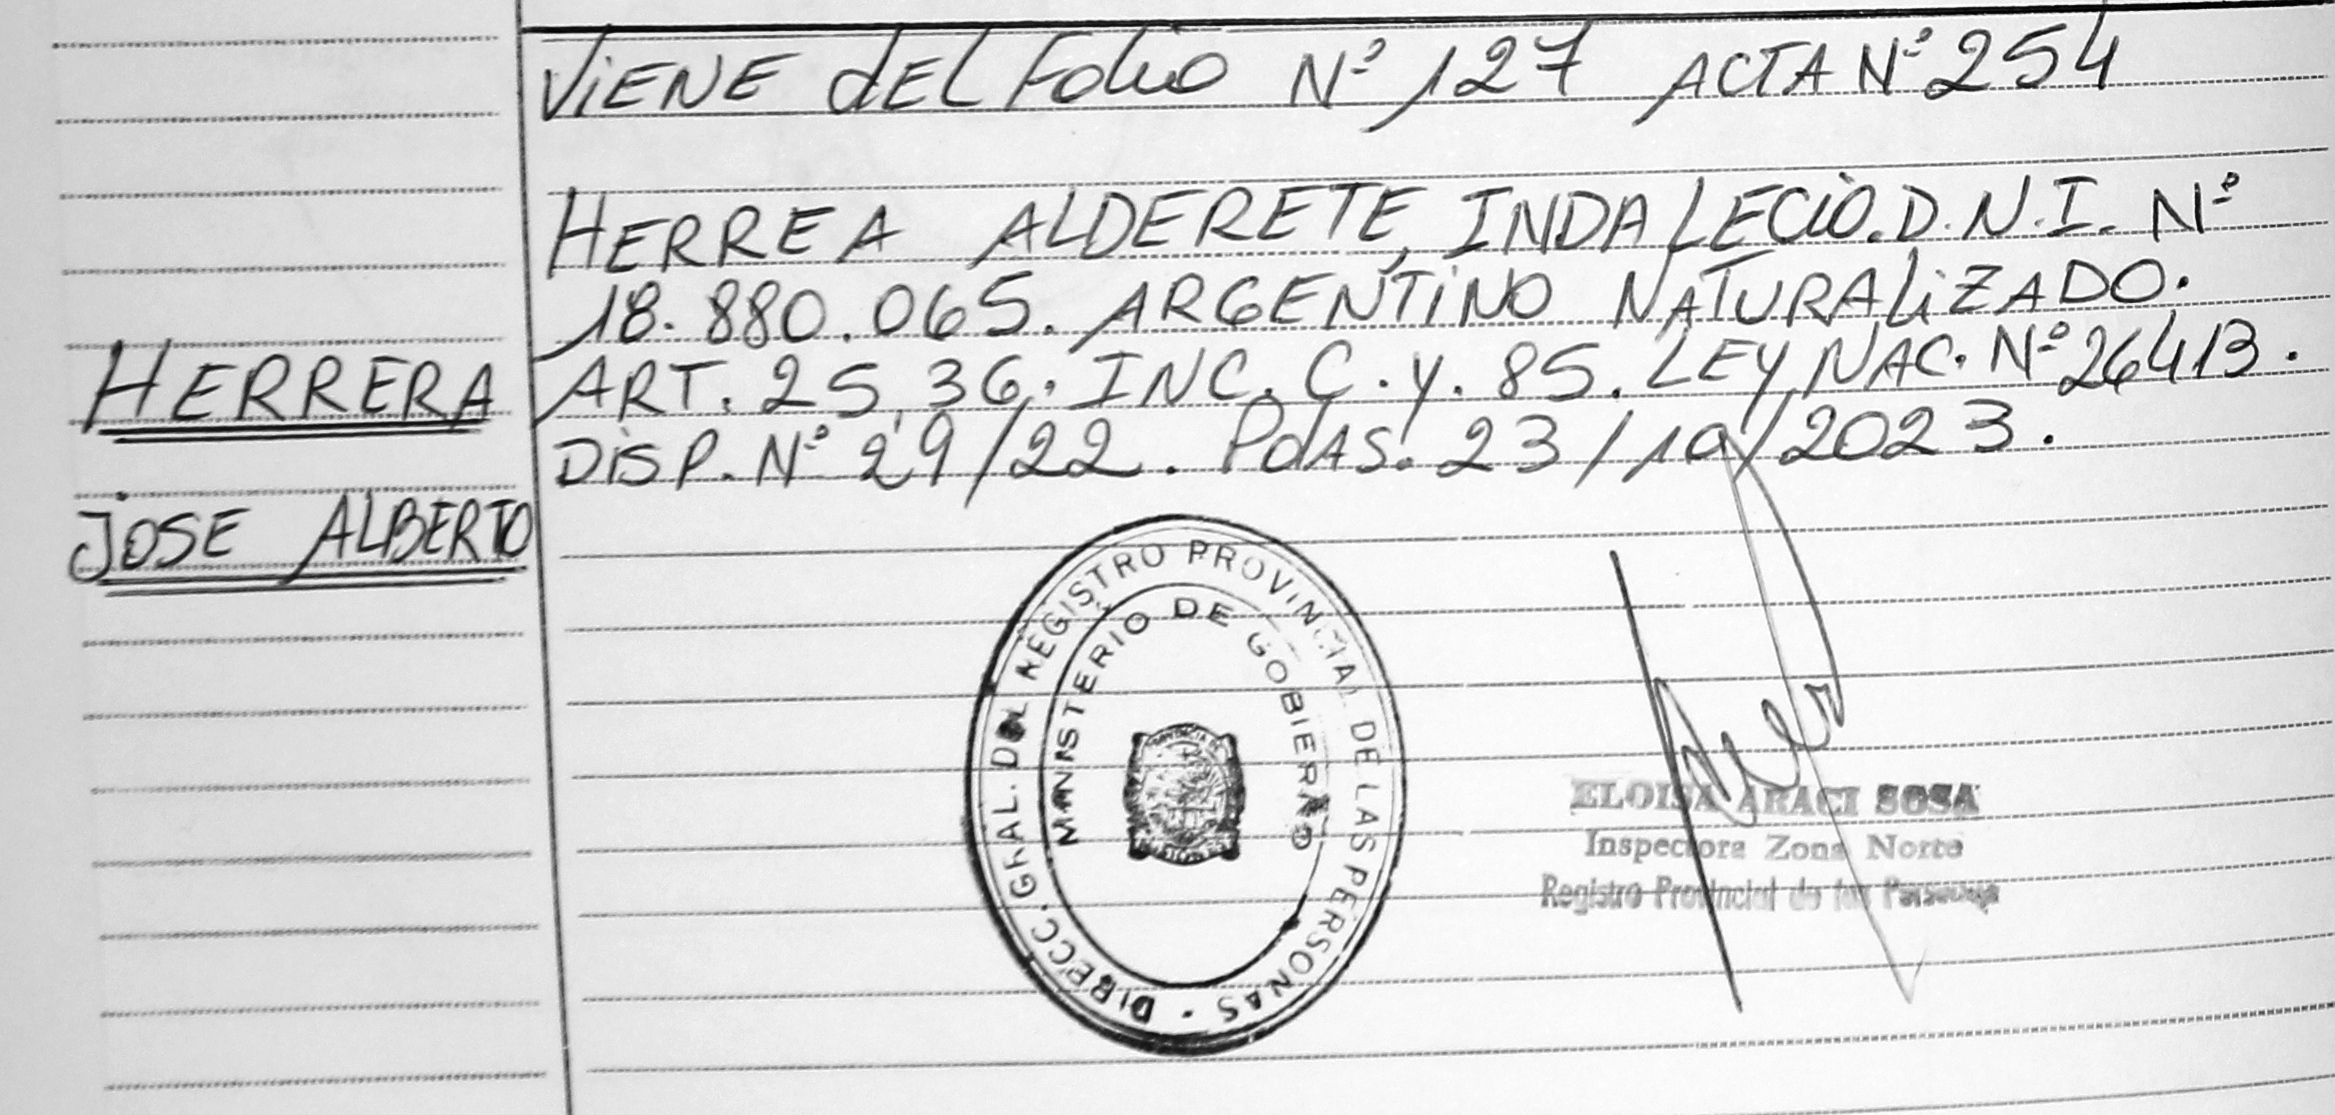 ViENE dEL Folio Nº 127 ACTA Nº 254
HERREA ALDERETE, INDALECiO. D.N.I. Nº
18.880.065. ARGENTiNO NATURALiZADO.
ART. 25, 36. INC. C. y. 85. LEY NAC. Nº 26413.
DiSP. Nº 29/22. PdAS. 23/10/2023.
HERRERA
JOSE ALBERTO
DIRECC. GRAL. DEL REGISTRO PROVINCIAL DE LAS PERSONAS
MINISTERIO DE GOBIERNO
ELOISA ARACI SOSA
Inspectora Zona Norte
Registro Provincial de las Personas